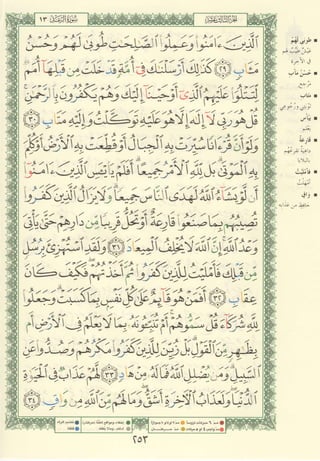 سورة الرعد ١٣
الجزء الثالث عشر
الَّذِينَ ءَامَنُوا وَعَمِلُوا الصَّٰلِحَٰتِ طُوبَىٰ لَهُمْ وَحُسْنُ
مَـَٔابٍ ٢٩ كَذَٰلِكَ أَرْسَلْنَٰكَ فِي أُمَّةٍ قَدْ خَلَتْ مِن قَبْلِهَا أُمَمٌ
لِّتَتْلُوَا عَلَيْهِمُ الَّذِي أَوْحَيْنَا إِلَيْكَ وَهُمْ يَكْفُرُونَ بِالرَّحْمَٰنِ
قُلْ هُوَ رَبِّي لَا إِلَٰهَ إِلَّا هُوَ عَلَيْهِ تَوَكَّلْتُ وَإِلَيْهِ مَتَابِ ٣٠
وَلَوْ أَنَّ قُرْءَانًا سُيِّرَتْ بِهِ الْجِبَالُ أَوْ قُطِّعَتْ بِهِ الْأَرْضُ أَوْ كُلِّمَ
بِهِ الْمَوْتَىٰ بَل لِّلَّهِ الْأَمْرُ جَمِيعًا أَفَلَمْ يَا۟يْـَٔسِ الَّذِينَ ءَامَنُوا
أَن لَّوْ يَشَاءُ اللَّهُ لَهَدَى النَّاسَ جَمِيعًا وَلَا يَزَالُ الَّذِينَ كَفَرُوا
تُصِيبُهُم بِمَا صَنَعُوا قَارِعَةٌ أَوْ تَحُلُّ قَرِيبًا مِّن دَارِهِمْ حَتَّىٰ يَأْتِيَ
وَعْدُ اللَّهِ إِنَّ اللَّهَ لَا يُخْلِفُ الْمِيعَادَ ٣١ وَلَقَدِ اسْتُهْزِئَ بِرُسُلٍ
مِّن قَبْلِكَ فَأَمْلَيْتُ لِلَّذِينَ كَفَرُوا ثُمَّ أَخَذْتُهُمْ فَكَيْفَ كَانَ
عِقَابِ ٣٢ أَفَمَنْ هُوَ قَائِمٌ عَلَىٰ كُلِّ نَفْسٍ بِمَا كَسَبَتْ وَجَعَلُوا
لِلَّهِ شُرَكَاءَ قُلْ سَمُّوهُمْ أَمْ تُنَبِّـُٔونَهُ بِمَا لَا يَعْلَمُ فِي الْأَرْضِ أَم
بِظَٰهِرٍ مِّنَ الْقَوْلِ بَلْ زُيِّنَ لِلَّذِينَ كَفَرُوا مَكْرُهُمْ وَصُدُّوا عَنِ
السَّبِيلِ وَمَن يُضْلِلِ اللَّهُ فَمَا لَهُ مِنْ هَادٍ ٣٣ لَّهُمْ عَذَابٌ فِي الْحَيَوٰةِ
الدُّنْيَا وَلَعَذَابُ الْءَاخِرَةِ أَشَقُّ وَمَا لَهُم مِّنَ اللَّهِ مِن وَاقٍ ٣٤
٢٥٣
طوبى لهم
حسن مآب
متاب
قارعة
فأمليت
واق